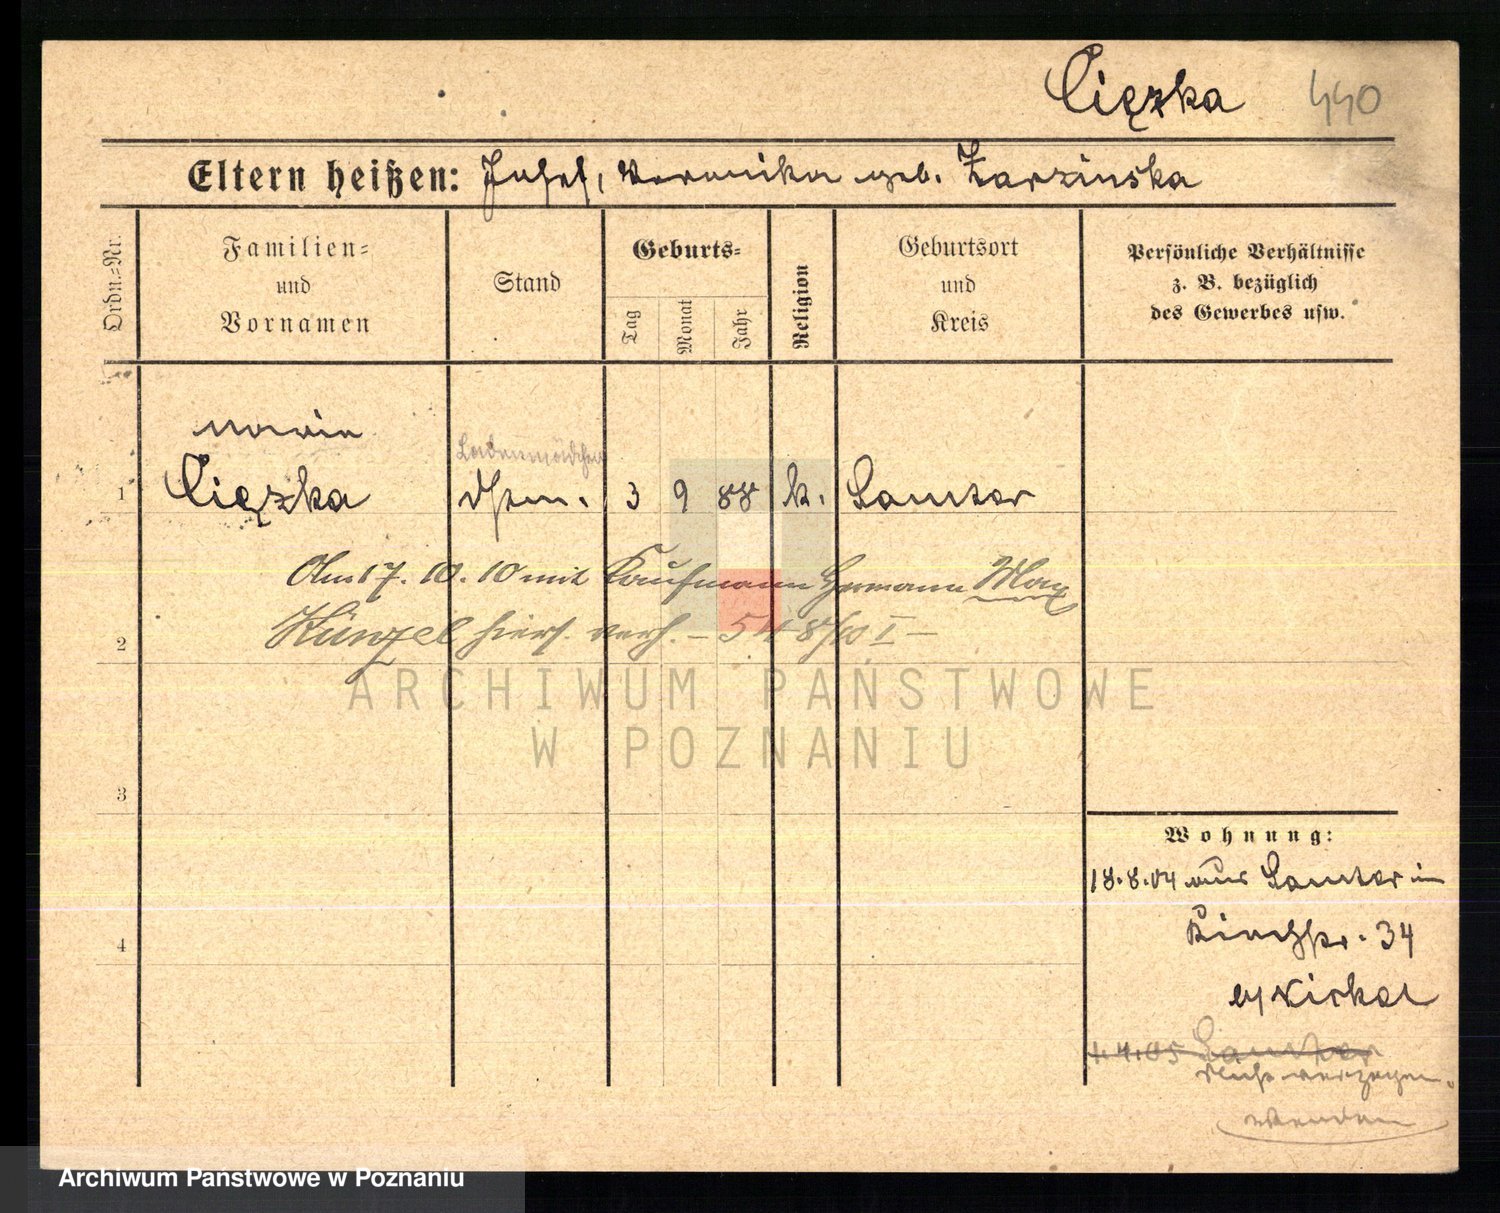 Ciężka 440
Eltern heißen: Josef, Veronika geb. Zarzinska
Ordn.=Nr.
Familien=
und
Vornamen
Stand
Geburts=
Tag
Monat
Jahr
Religion
Geburtsort
und
Kreis
Persönliche Verhältnisse
z. B. bezüglich
des Gewerbes usw.
Maria
Ladenmädchen
1 Ciężka 3 9 88 k. Samter
Am 17. 10. 10 mit Kaufmann Hermann Max
Künzel hiers. verh. – 548/10 I –
2
ARCHIWUM PAŃSTWOWE
W POZNANIU
3
Wohnung:
18.8.04 aus Samter in
4
Kirchstr. 34
b/ Nickel
4.05 Samter
nicht verzogen.
wenden
Archiwum Państwowe w Poznaniu